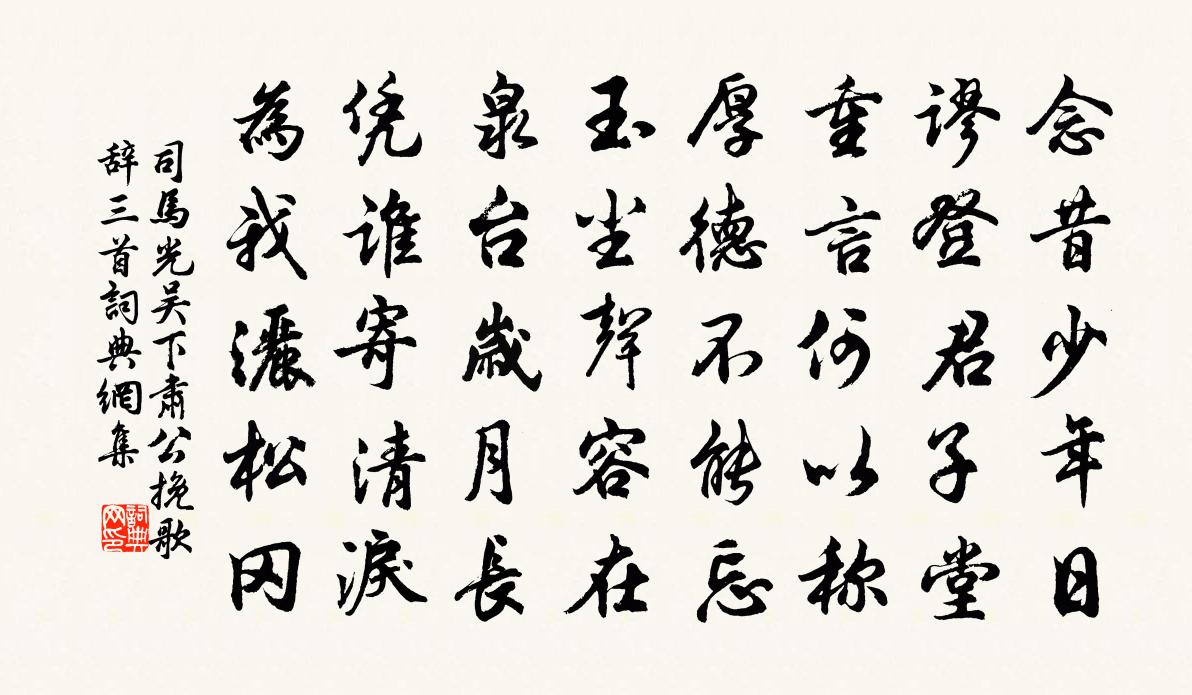 念昔少年日
謬登君子堂
重言何以称
厚德不能忘
玉尘聲容在
泉台歲月長
凭谁寄清淚
為我灑松冈
司馬光吴下肅公挽歌
辞三首詞典網集
詞典网印